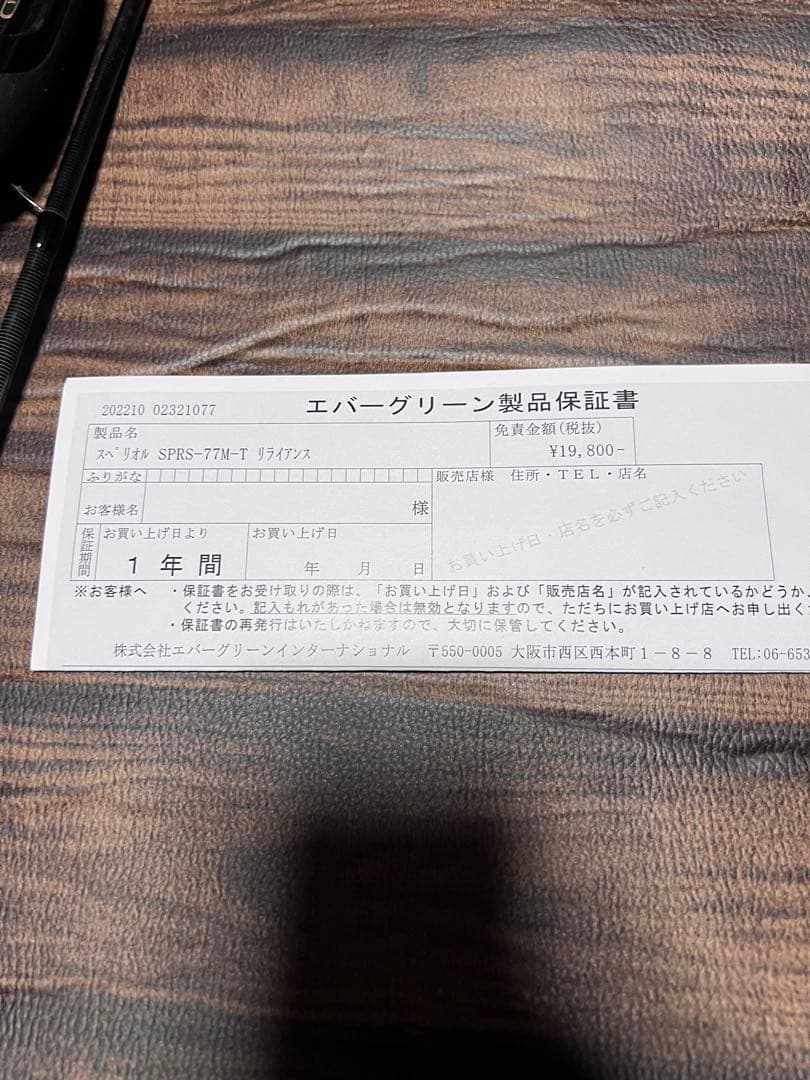 202210 02321077 エバーグリーン製品保証書
製品名 免責金額(税抜)
ｽﾍﾟﾘｵﾙ SPRS-77M-T ﾘﾗｲｱﾝｽ ¥19,800-
ふりがな 販売店様 住所・TEL・店名
お客様名 様
お買い上げ日・店名を必ずご記入ください
保証期間 お買い上げ日より お買い上げ日
１年間 年 月 日
※お客様へ ・保証書をお受け取りの際は、「お買い上げ日」および「販売店名」が記入されているかどうか、
ください。記入もれがあった場合は無効となりますので、ただちにお買い上げ店へお申し出く
・保証書の再発行はいたしかねますので、大切に保管してください。
株式会社エバーグリーンインターナショナル 〒550-0005 大阪市西区西本町１－８－８ TEL:06-653